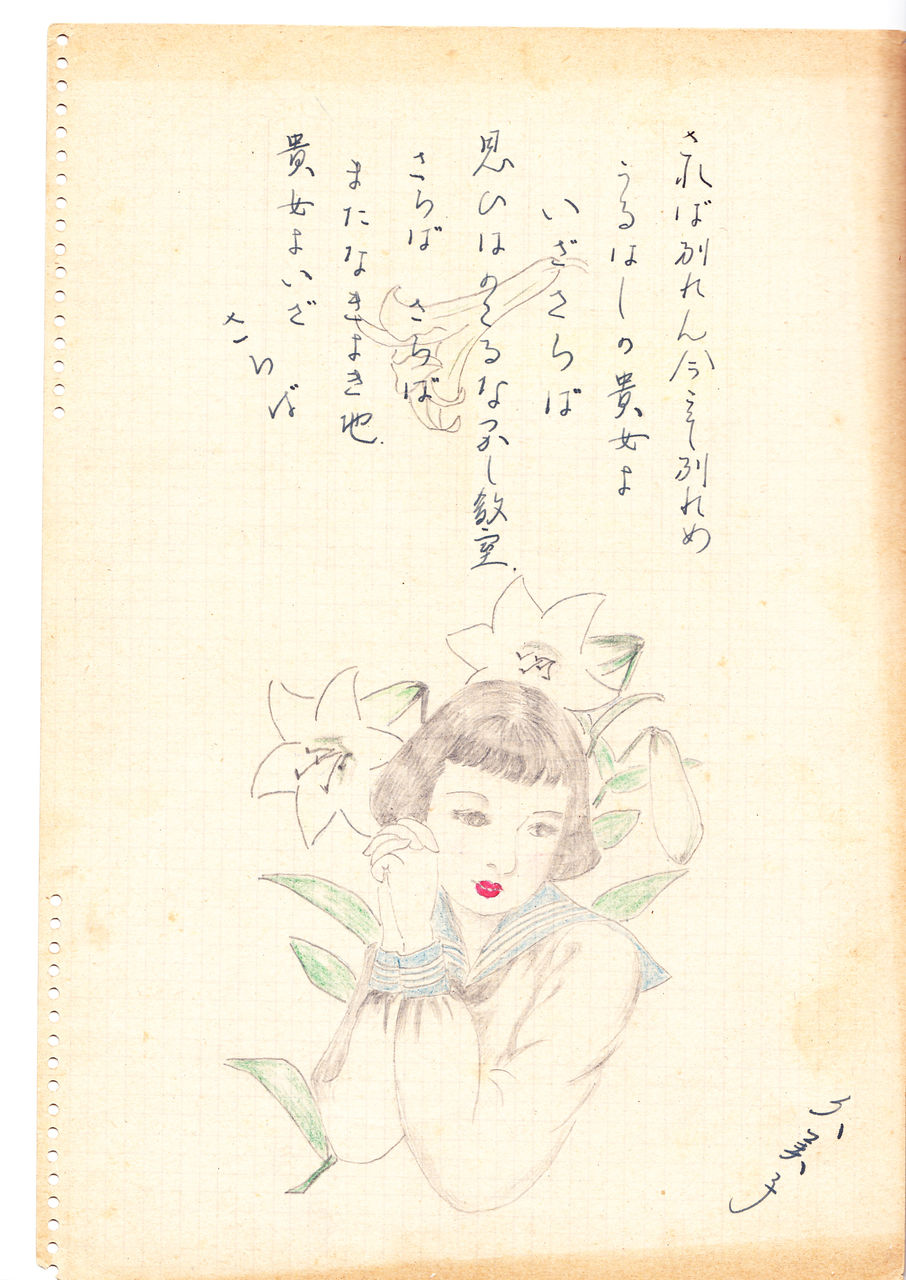 されば別れん今こそ別れめ
うるはしの貴女よ
いざさらば
思ひはのこるなつかし教室.
さらば さらば
またなききよき地.
貴女よいざ
さらば